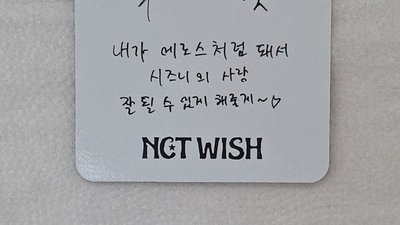 내가 에로스처럼 돼서
시즈니의 사랑
잘 될 수 있게 해줄게~♡
NCT WISH